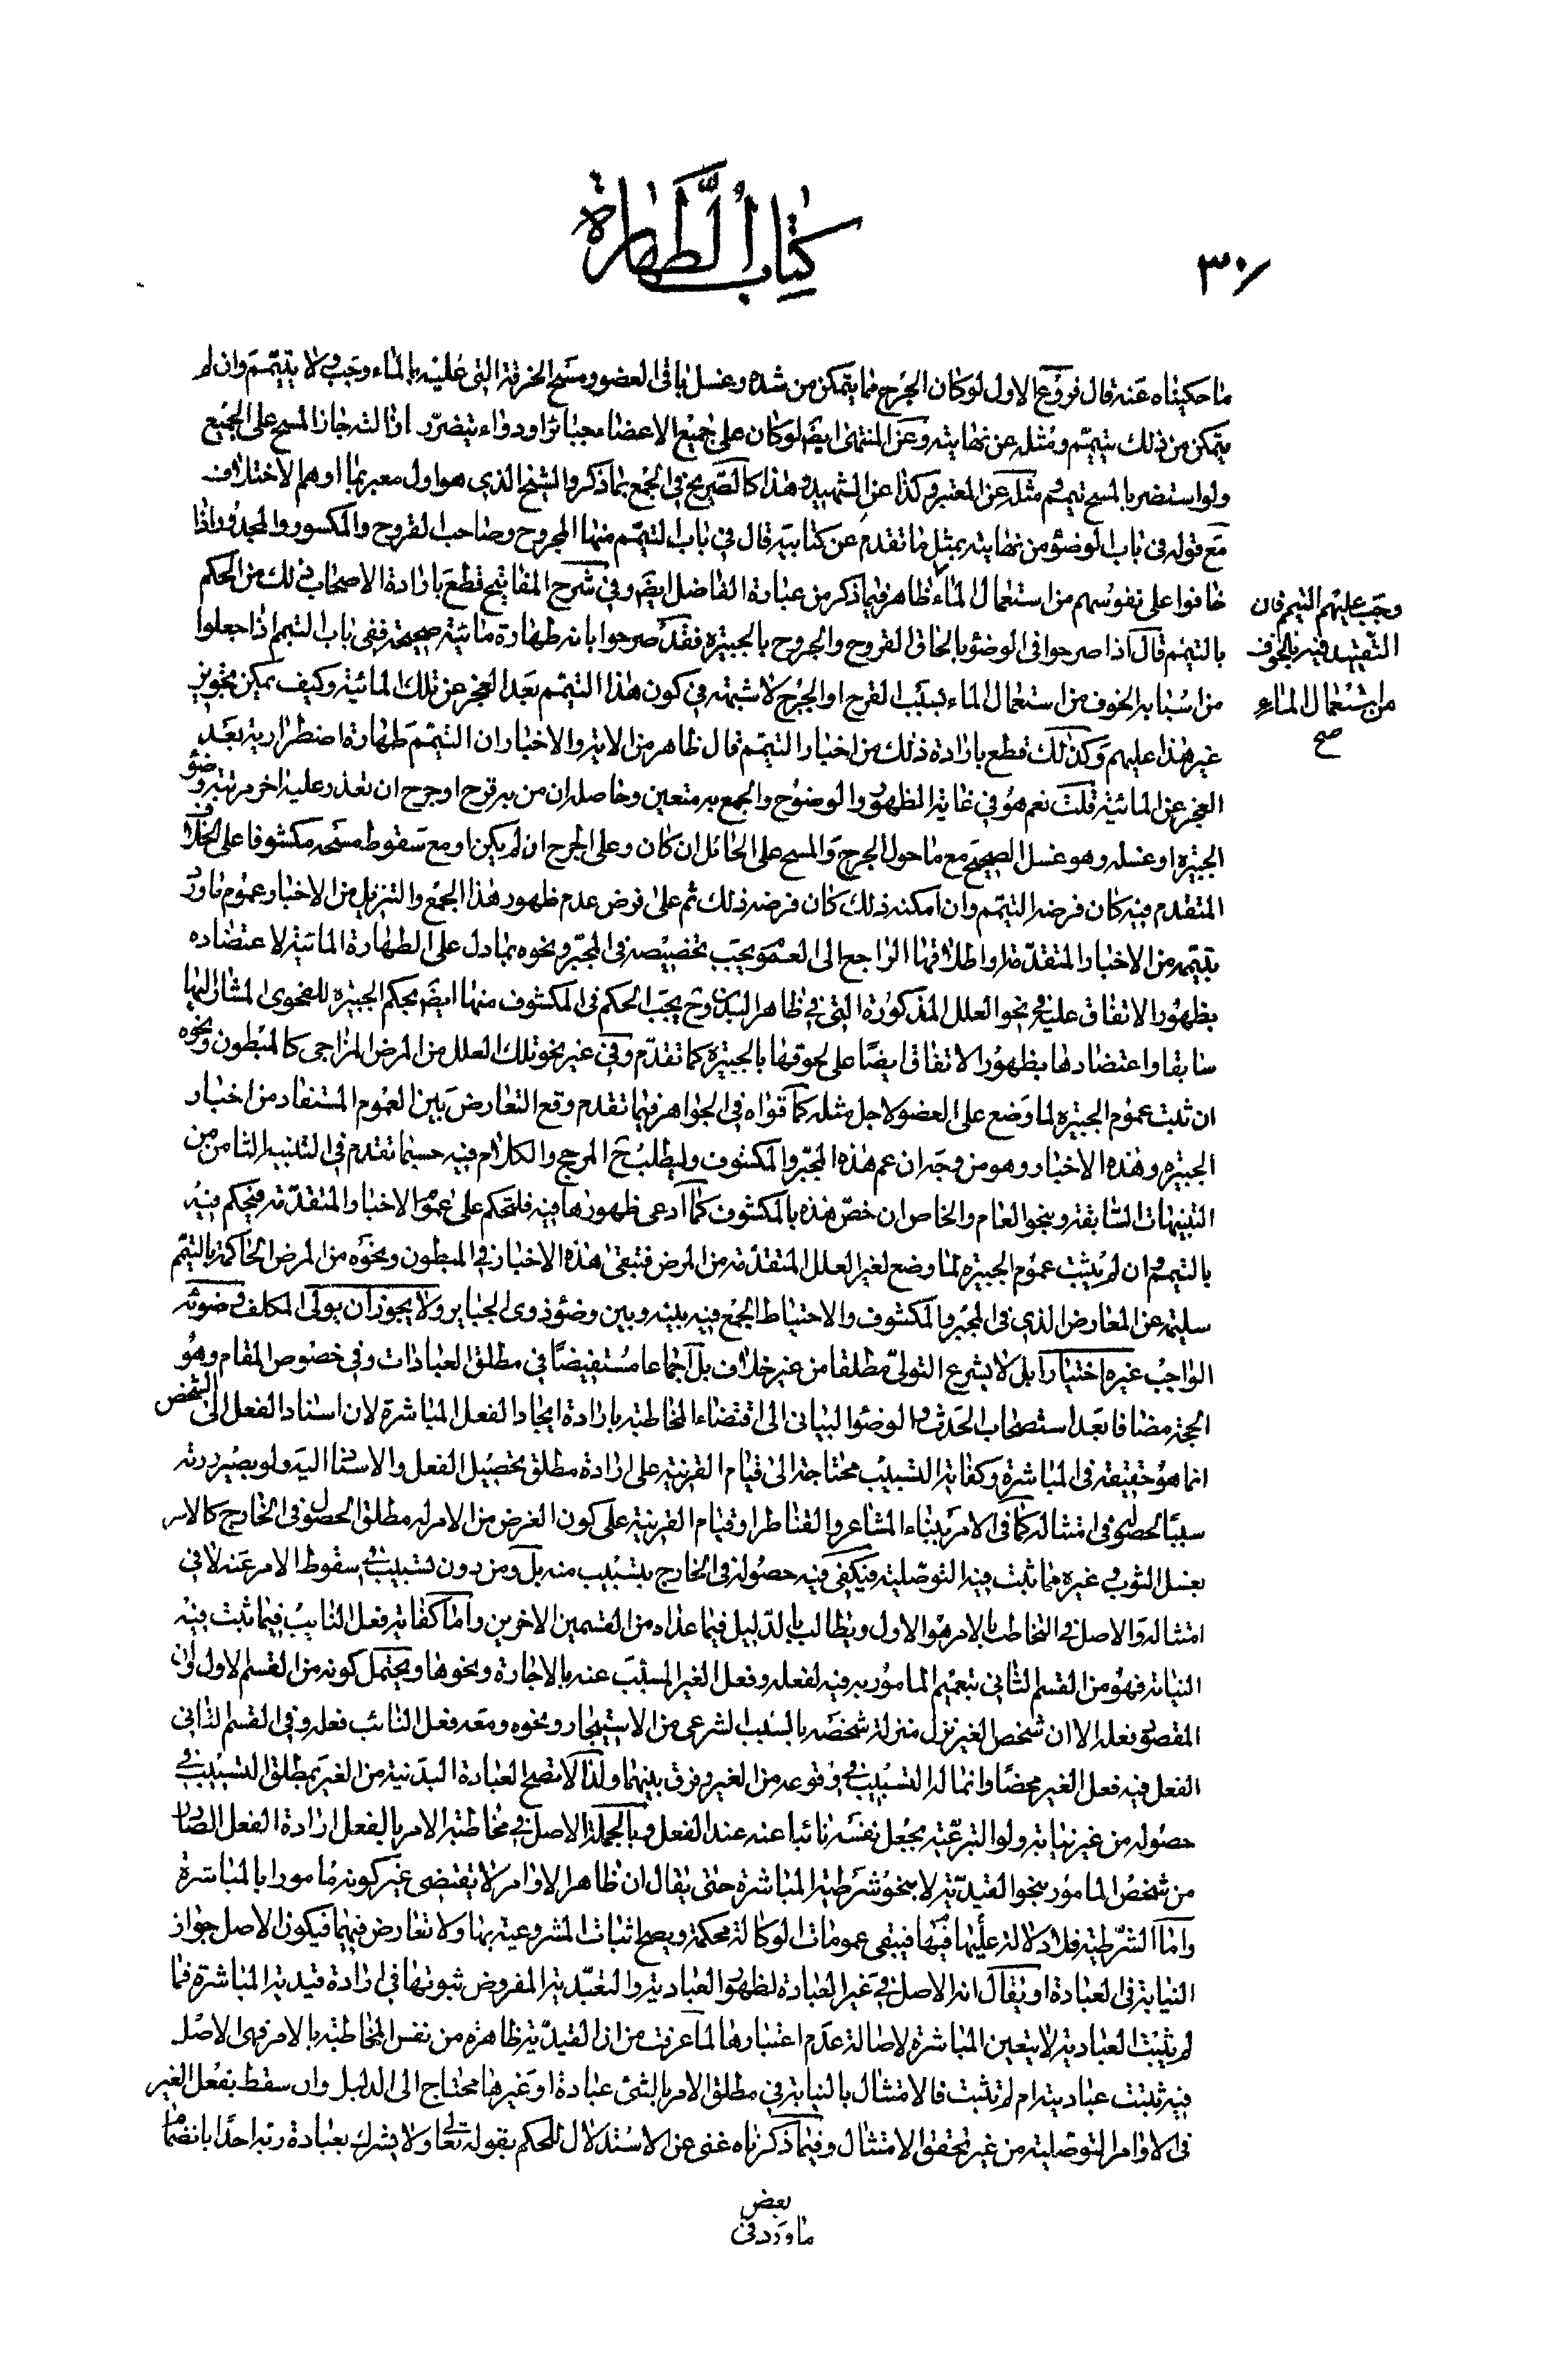 كتاب الطهارة
٣٠٧
ما حكيناه عنه قال فروع الاول لو كان الجرح مما يتمكن من شده وغسل باقي العضو ومسح الخرقة التي عليه بالماء وجب ولا يتيمم وان لم
يتمكن من ذلك يتيمم ومثله عن نهايته وعن المنتهى ايضا لو كان على جميع الاعضاء جبائر او دواء يتضرر ازالته جاز المسح على الجميع
ولو استضر بالمسح تيمم ومثله عن المعتبر وكذا عن الشهيد وهذا كالصريح في الجمع بما ذكر والشيخ الذي هو اول معبر بما اوهم الاختلاف
مع قوله في باب الوضوء من نهايته بمثل ما تقدم عن كتابيه قال في باب التيمم منها المجروح وصاحب القروح والمكسور والمجدور اذا
خافوا على نفوسهم من استعمال الماء ظاهر فيما ذكر من عبارة الفاضل ايضا وفي شرح المفاتيح قطع بارادة الاصحاب ذلك من الحكم
وجب عليهم التيمم فان
التقييد فيه بالخوف
من استعمال الماء
صح
بالتيمم قال اذا صرحوا في الوضوء بالحاق القروح والجروح بالجبيرة فقد صرحوا بانه طهارة مائية صحيحة ففي باب التيمم اذا جعلوا
من اسبابه الخوف من استعمال الماء بسبب القرح او الجرح لا شبهة في كون هذا التيمم بعد العجز عن تلك المائية وكيف يمكن تجويز
غير هذا عليهم وكذلك قطع بارادة ذلك من اخبار التيمم قال ظاهر من الاية والاخبار ان التيمم طهارة اضطرارية بعد
العجز عن المائية قلت نعم هو في غاية الظهور والوضوح والجمع به متعين وحاصله ان من به قروح او جرح ان تعذر عليه اخر مرتبة وضوء
الجبيرة او غسله وهو غسل الصحيح مع ما حول الجرح والمسح على الحائل ان كان وعلى الجرح ان لم يكن او مع سقوط مسحه مكشوفا على الخلاف
المتقدم فيه كان فرضه التيمم وان امكنه ذلك كان فرضه ذلك ثم على فرض عدم ظهور هذا الجمع والتنزيل من الاخبار وعموم ما ورد
بتيممه من الاخبار المتقدمة واطلاقها الراجع الى العموم يجب تخصيصه في المجبر ونحوه بما دل على الطهارة المائية لاعتضاده
بظهور الاتفاق عليه في نحو العلل المذكورة التي في ظاهر البدن وح يجب الحكم في المكشوف منها ايضا بحكم الجبيرة للفحوى المشار اليها
سابقا واعتضادها بظهور الاتفاق ايضا على لحوقها بالجبيرة كما تقدم وفي غير نحو تلك العلل من المرض المزاجي كالمبطون ونحوه
ان ثبت عموم الجبيرة لما وضع على العضو لاجل مثله كما قواه في الجواهر فيما تقدم وقع التعارض بين العموم المستفاد من اخبار
الجبيرة وهذه الاخبار وهو من وجه ان عم هذه المجبر والمكشوف وليطلب ح المرجح والكلام فيه حسبما تقدم في التنبيه الثامن من
التنبيهات السابقة وبنحو العام والخاص ان خص هذه بالمكشوف كما ادعى ظهورها فيه فلتحكم على عموم الاخبار المتقدمة فيحكم فيه
بالتيمم وان لم يثبت عموم الجبيرة لما وضع لغير العلل المتقدمة من المرض فتبقى هذه الاخبار في المبطون ونحوه من المرض الحاكمة بالتيمم
سليمة عن المعارض الذي في المجبر والمكشوف والاحتياط الجمع فيه بينه وبين وضوء ذوي الجباير ولا يجوز ان يولى المكلف وضوئه
الواجب غيره اختيارا بل لا يشرع التولي مطلقا من غير خلاف بل اجماعا مستفيضا في مطلق العبادات وفي خصوص المقام وهو
الحجة مضافا بعد استصحاب الحدث والوضوء البياني الى اقتضاء المخاطبة بارادة ايجاد الفعل المباشرة لان اسناد الفعل الى الشخص
انما هو حقيقة في المباشرة وكفاية التسبيب محتاجة الى قيام القرينة على ارادة مطلق تحصيل الفعل والاسناد اليه ولو بصيرورته
سببا لحصوله في امتثاله كما في الامر ببناء المشاعر والقناطر او قيام القرينة على كون الغرض من الامر له مطلق الحصول في الخارج كالامر
بغسل الثوب وغيره مما ثبت فيه التوصلية فيكفي فيه حصوله في الخارج بتسبيب منه بل ومن دون تسبيب في سقوط الامر عنه لا في
امتثاله والاصل في التخاطب بالامر هو الاول ويطالب بالدليل فيما عداه من القسمين الاخرين واما كفاية فعل النايب فيما ثبت فيه
النيابة فهو من القسم الثاني بتعميم المامور به فيه لفعله وفعل الغير المسبب عنه بالاجارة ونحوها ويحتمل كونه من القسم الاول لان
المقصود فعله الا ان شخص الغير نزل منزلة شخصه بالسبب الشرعي من الاستيجار ونحوه ومعه فعل النائب فعله وفي القسم الثاني
الفعل فيه فعل الغير محضا وانما له التسبيب في وقوعه من الغير وفرق بينهما ولذا لا تصح العبادة البدنية من الغير بمطلق التسبيب في
حصوله من غير نيابة ولو التبرعية بجعل نفسه نائبا عنه عند الفعل وبالجملة الاصل في مخاطبة الامر بالفعل ارادة الفعل الصادر
من شخص المامور بنحو القيدية لا بنحو شرطية المباشرة حتى يقال ان ظاهر الاوامر لا تقتضي غير كونه مامورا بالمباشرة
واما الشرطية فلا دلالة عليها فيها فيبقى عمومات الوكالة محكمة ويصح اثبات المشروعية بها ولا تعارض فيهما فيكون الاصل جواز
النيابة في العبادة او يقال انه الاصل في غير العبادة لظهور العبادية والتعبدية المفروض ثبوتها في ارادة قيدية المباشرة فما
لم يثبت العبادية لا يتعين المباشرة لاصالة عدم اعتبارها لما عرفت من ان القيدية ظاهرة من نفس المخاطبة بالامر فهي الاصل
فيه ثبتت عباديته ام لم تثبت فالامتثال بالنيابة في مطلق الامر بالشئ عبادة او غيرها محتاج الى الدليل وان سقط بفعل الغير
في الاوامر التوصلية من غير تحقق الامتثال وفيما ذكرناه غنى عن الاستدلال للحكم بقوله تعالى ولا يشرك بعبادة ربه احدا بانضمام
بعض
ما ورد في